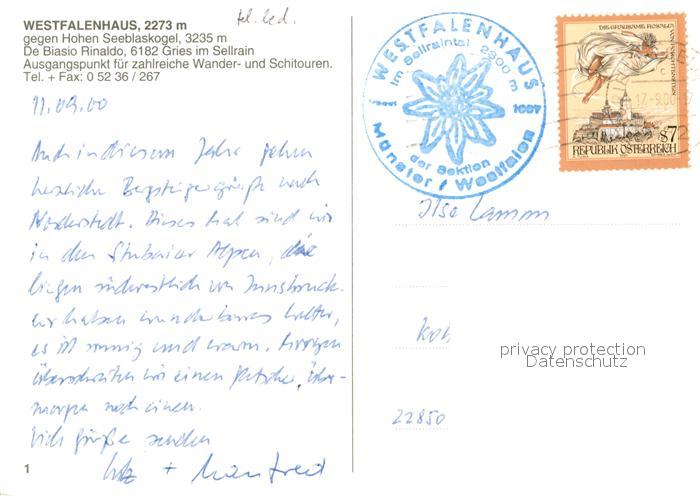 WESTFALENHAUS, 2273 m
tel. bed.
gegen Hohen Seeblaskogel, 3235 m
De Biasio Rinaldo, 6182 Gries im Sellrain
Ausgangspunkt für zahlreiche Wander- und Schitouren.
Tel. + Fax: 0 52 36 / 267
11.09.00
Auch in diesem Jahr gehen
herzliche Bergsteigergrüße nach
Norderstedt. Dieses Mal sind wir
in den Stubaier Alpen, die
liegen südwestlich von Innsbruck.
wir haben wunderbares Wetter,
es ist sonnig und warm. Morgen
überschreiten wir einen Gletscher, über-
morgen noch einen.
Viele Grüße senden
+ Manfred
1
WESTFALENHAUS
im Sellraintal 2300 m
der Sektion
Münster / Westfalen
REPUBLIK ÖSTERREICH
S7
Ilse Lamm
22850
privacy protection
Datenschutz